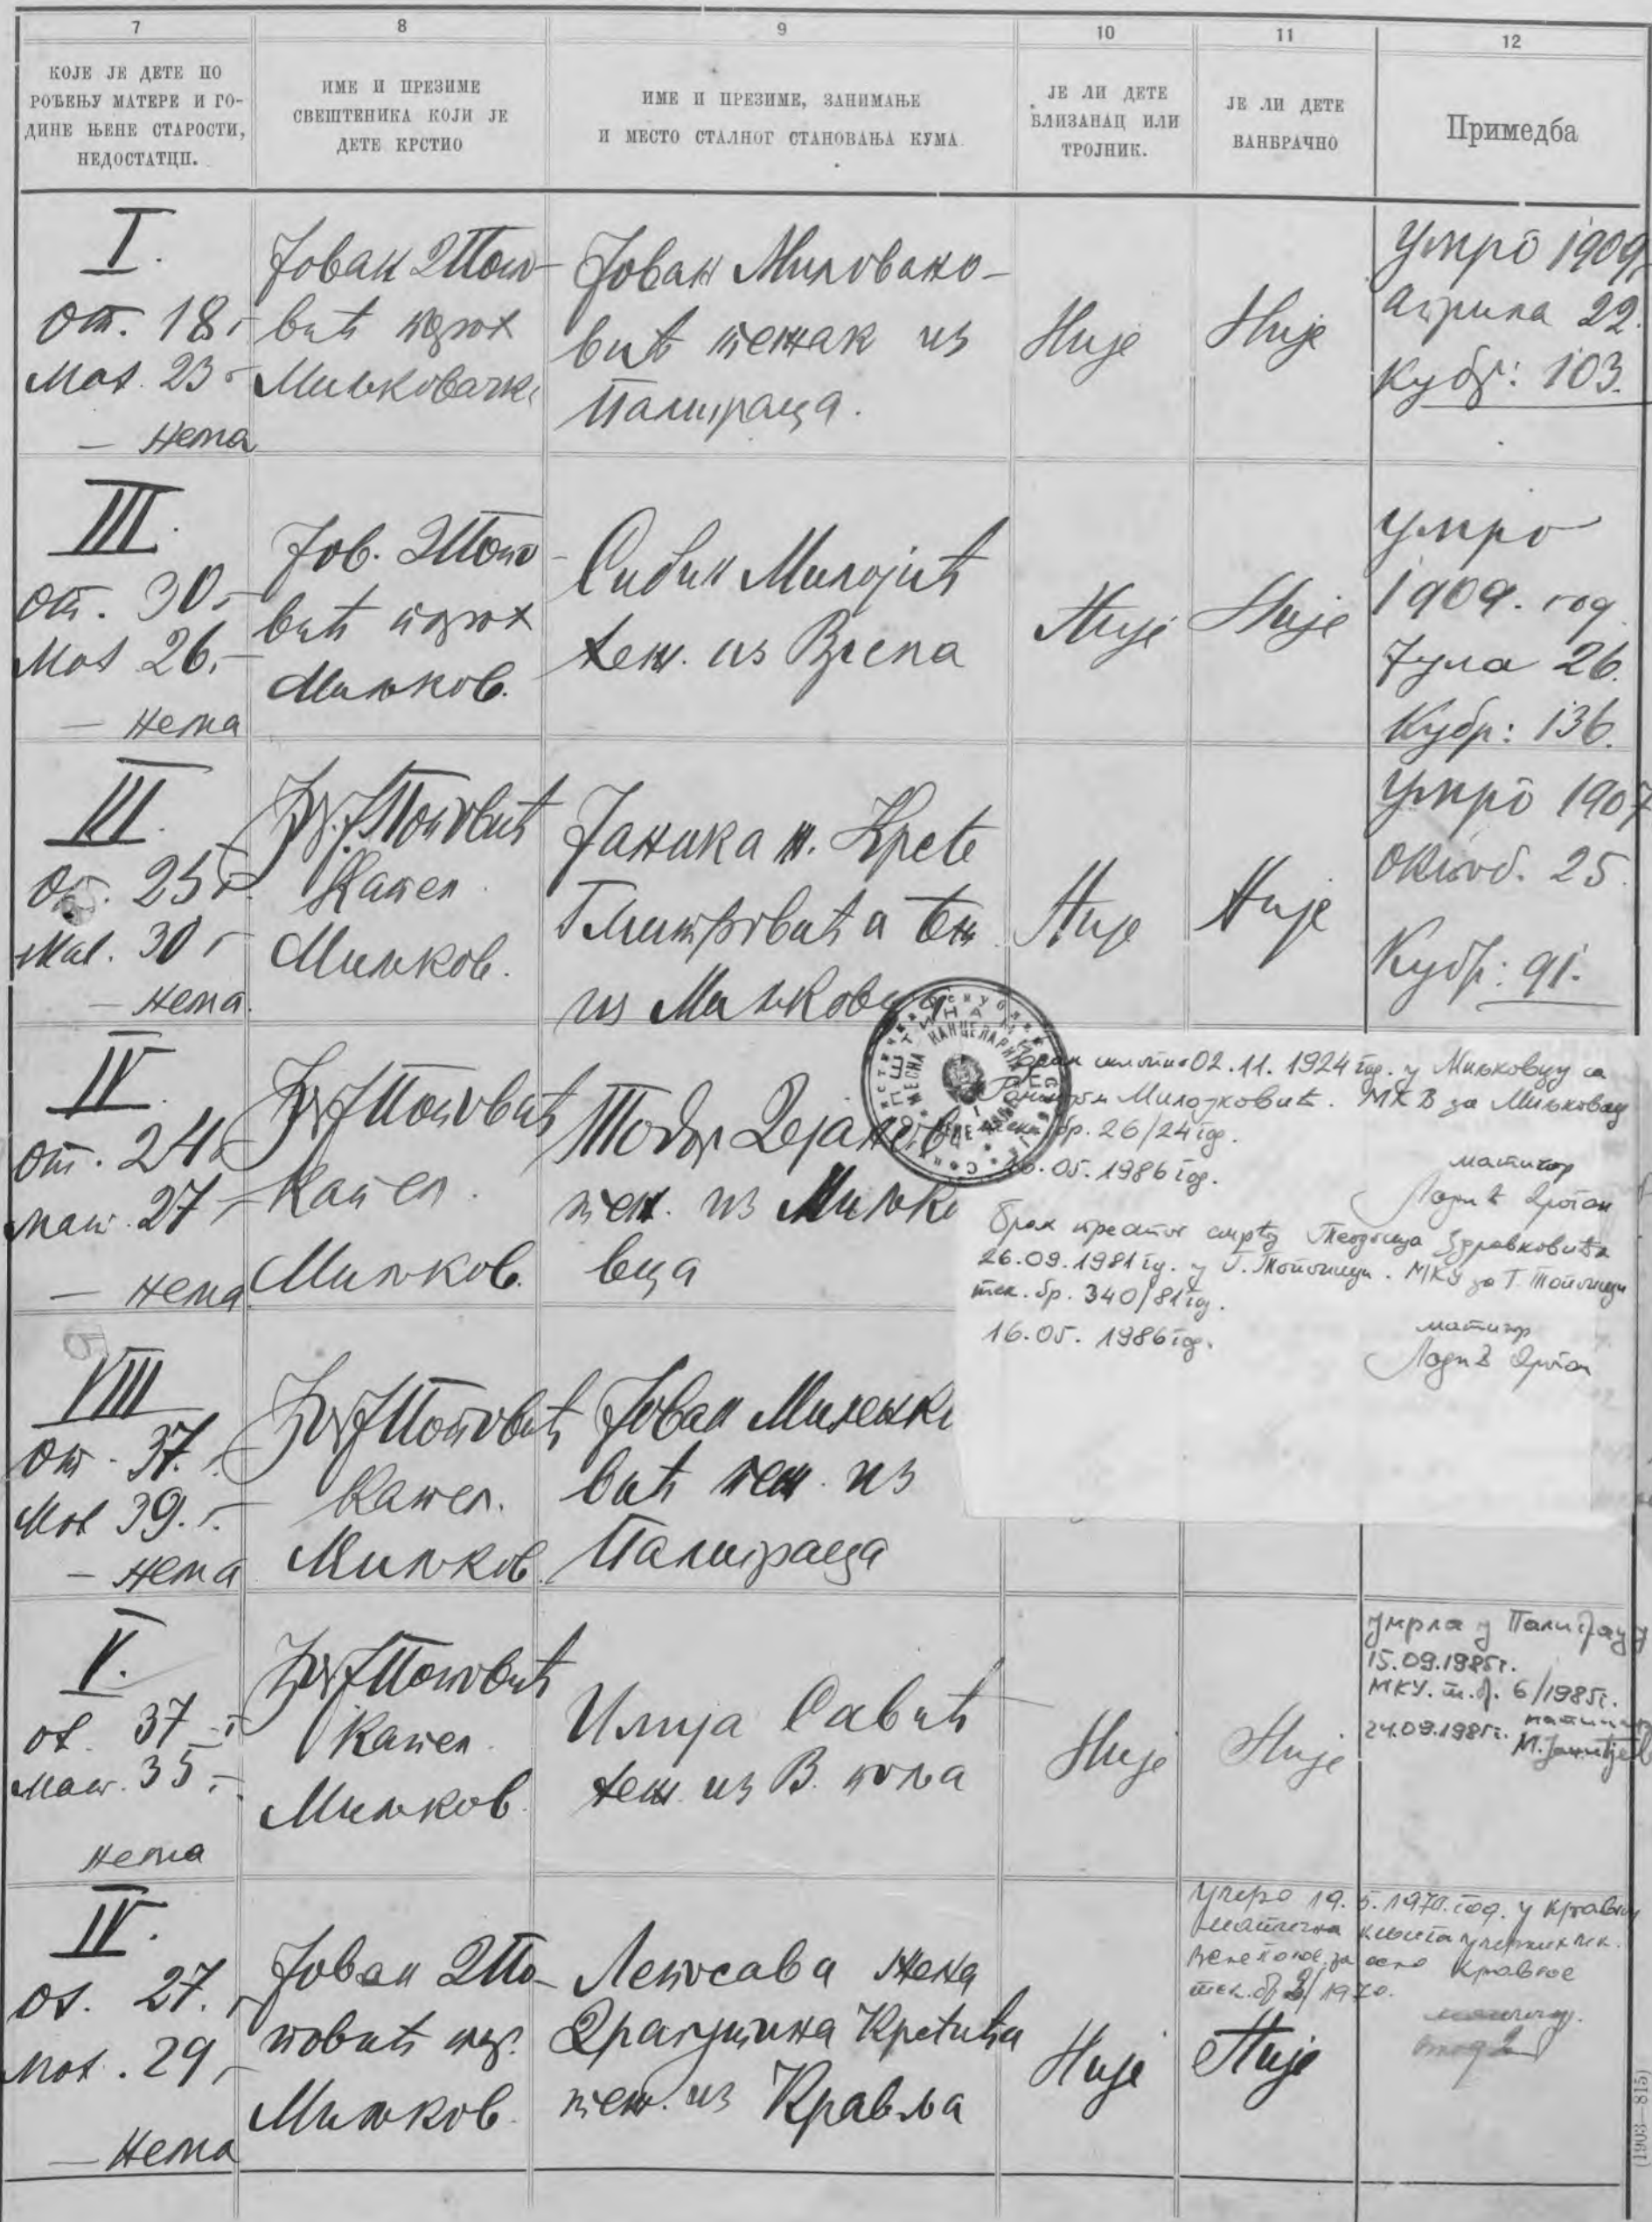 7
КОЈЕ ЈЕ ДЕТЕ ПО
РОЂЕЊУ МАТЕРЕ И ГО-
ДИНЕ ЊЕНЕ СТАРОСТИ,
НЕДОСТАТЦИ.
8
ИМЕ И ПРЕЗИМЕ
СВЕШТЕНИКА КОЈИ ЈЕ
ДЕТЕ КРСТИО
9
ИМЕ И ПРЕЗИМЕ, ЗАНИМАЊЕ
И МЕСТО СТАЛНОГ СТАНОВАЊА КУМА.
10
ЈЕ ЛИ ДЕТЕ
БЛИЗАНАЦ ИЛИ
ТРОЈНИК.
11
ЈЕ ЛИ ДЕТЕ
ВАНБРАЧНО
12
Примедба
I.
От. 18.
Мат. 23
— Нема
Јован Попо-
вић парох
Миљковачки
Јован Миловано-
вић тежак из
Палиграца.
Није
Није
Умро 1909
Априла 22.
Књ бр: 103.
III.
От. 30.
Мат 26.
— Нема
Јов. Попо-
вић парох
Миљков.
Сибин Милојић
теж. из Врела
Није
Није
Умро
1909. год
Јула 26.
Књ бр: 136.
От. 25
Мат. 30
— Нема.
Поповић
Капел.
Миљков.
Јаника ж. Крсте
Димитровића теж
из Миљковца
Није
Није
Умро 1907
Октоб. 25.
Књ бр: 91.
IV
От. 24
Мат. 27
— Нема
Поповић
Капел.
Миљков.
Тодор Дејанов
теж. из Миљко
вца
МЕСНА КАНЦЕЛАРИЈА
02.11.1924 год. у Миљковцу са
Милојковић. МКВ за Миљковац
бр. 26/24 год.
16.05.1986 год.
матичар
Брак престао смрћу Теодосија Здравковића
26.09.1981 г. у Г. Топоници. МКУ за Г. Топоницу
тек. бр. 340/81 год.
16.05.1986 год.
матичар
VIII
От. 37.
Мат 39.
— Нема
Поповић
Капел.
Миљков.
Јован Миленко
вић теж. из
Палиграца
V.
От. 37
Мат. 35.
Нема
Поповић
Капел.
Миљков
Илија Савић
теж. из В. поља
Није
Није
Умрла у Палиграцу
15.09.1985г.
МКУ. т. б. 6/1985г.
24.09.1985г. матичар
IV.
От. 27.
Мат. 29
— Нема
Јован По-
повић пар.
Миљков.
Лепосава жена
Драгутина Крстића
теж. из Кравља
Није
Није
Умро 19. 5. 1970. год. у Крављу
матична књига умрлих
за село Кравље
тек. бр 3/1970.
(1903—815)